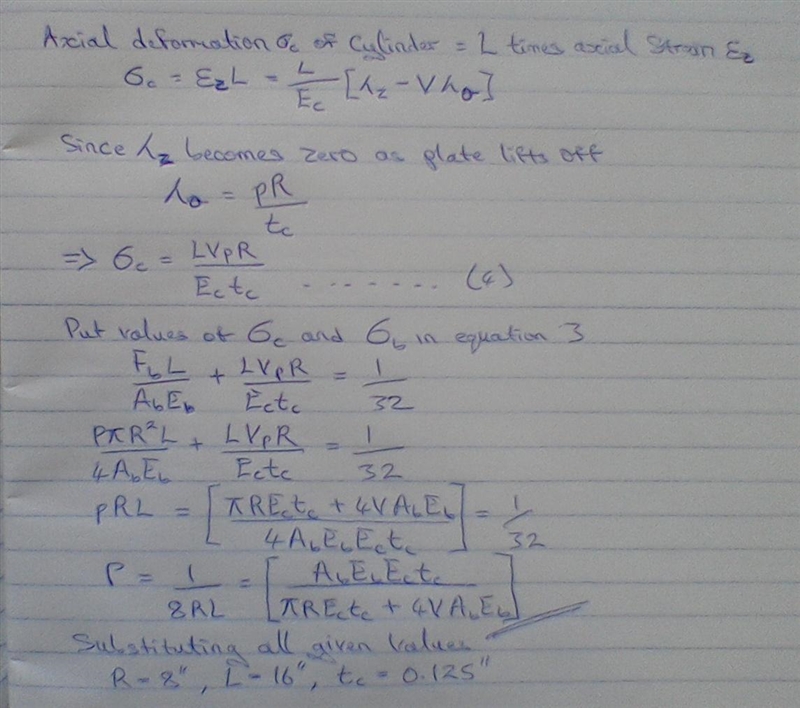 Axial deformation σc of Cylinder = L times axial Strain εz
σc = εzL = L/Ec [λz - Vλθ]
Since λz becomes zero as plate lifts off
λθ = pR/tc
=> σc = LVpR/Ectc ....... (4)
Put values of σc and σb in equation 3
FbL/AbEb + LVpR/Ectc = 1/32
PπR²L/4AbEb + LVpR/Ectc = 1/32
pRL = [πREctc + 4VAbEb / 4AbEbEctc] = 1/32
P = 1/8RL = [AbEbEctc / πREctc + 4VAbEb]
Substituting all given values
R = 8", L = 16", tc = 0.125"